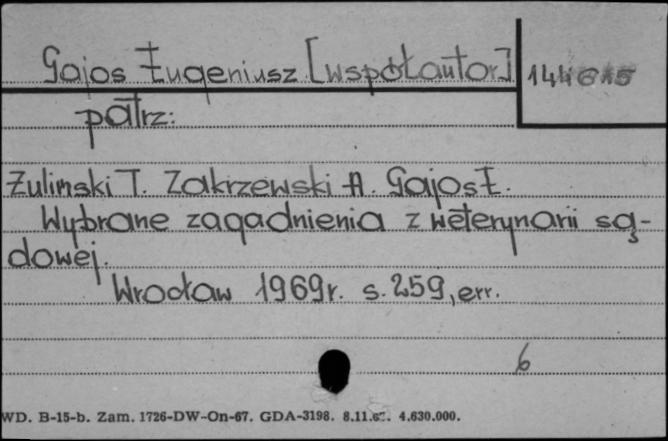 Gajos Eugeniusz [współautor]
144615
patrz:
Żuliński T. Zakrzewski A. Gajos E.
Wybrane zagadnienia z weterynarii są-
dowej.
Wrocław 1969r. s. 259, err.
6
WD. B-15-b. Zam. 1726-DW-On-67. GDA-3198. 8.11.67. 4.630.000.